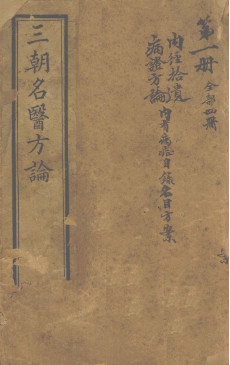 第一册 全部四册
内经拾遗
病證方論 内有病症目録名目方案
三朝名醫方論